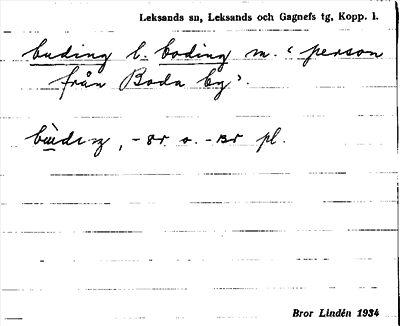 Leksands sn, Leksands och Gagnefs tg, Kopp. l.
buding l. boding m. 'person
från Boda by'.
, -ər o. -ɪər pl.
Bror Lindén 1934